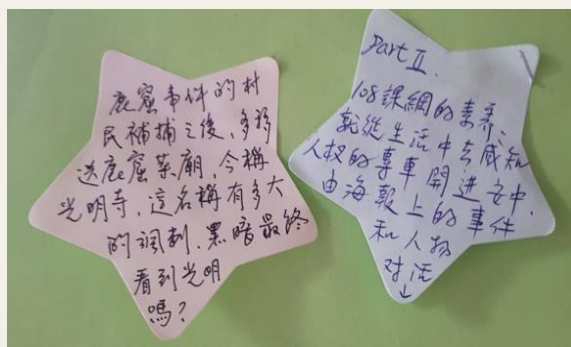 鹿窟事件的村
民補捕之後，多移
送鹿窟菜廟，今稱
光明寺，這名稱有多大
的諷刺．黑暗最終
看到光明
嗎？
Part II.
108課綱的素养、
就從生活中去感知
人权的專車開進安中．
由海報上的事件
和人物
对话
↓